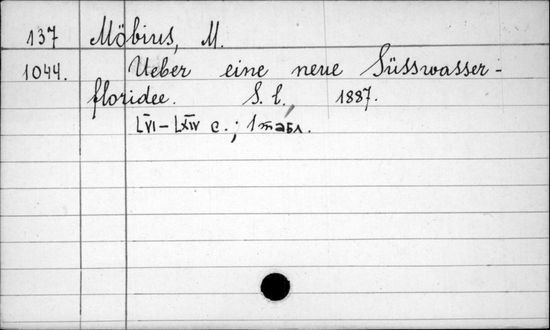 137 Möbius, M.
1044. Ueber eine neue Süsswasser-
floridee. S. l., 1887.
LVI-LXIV с.; 1 табл.